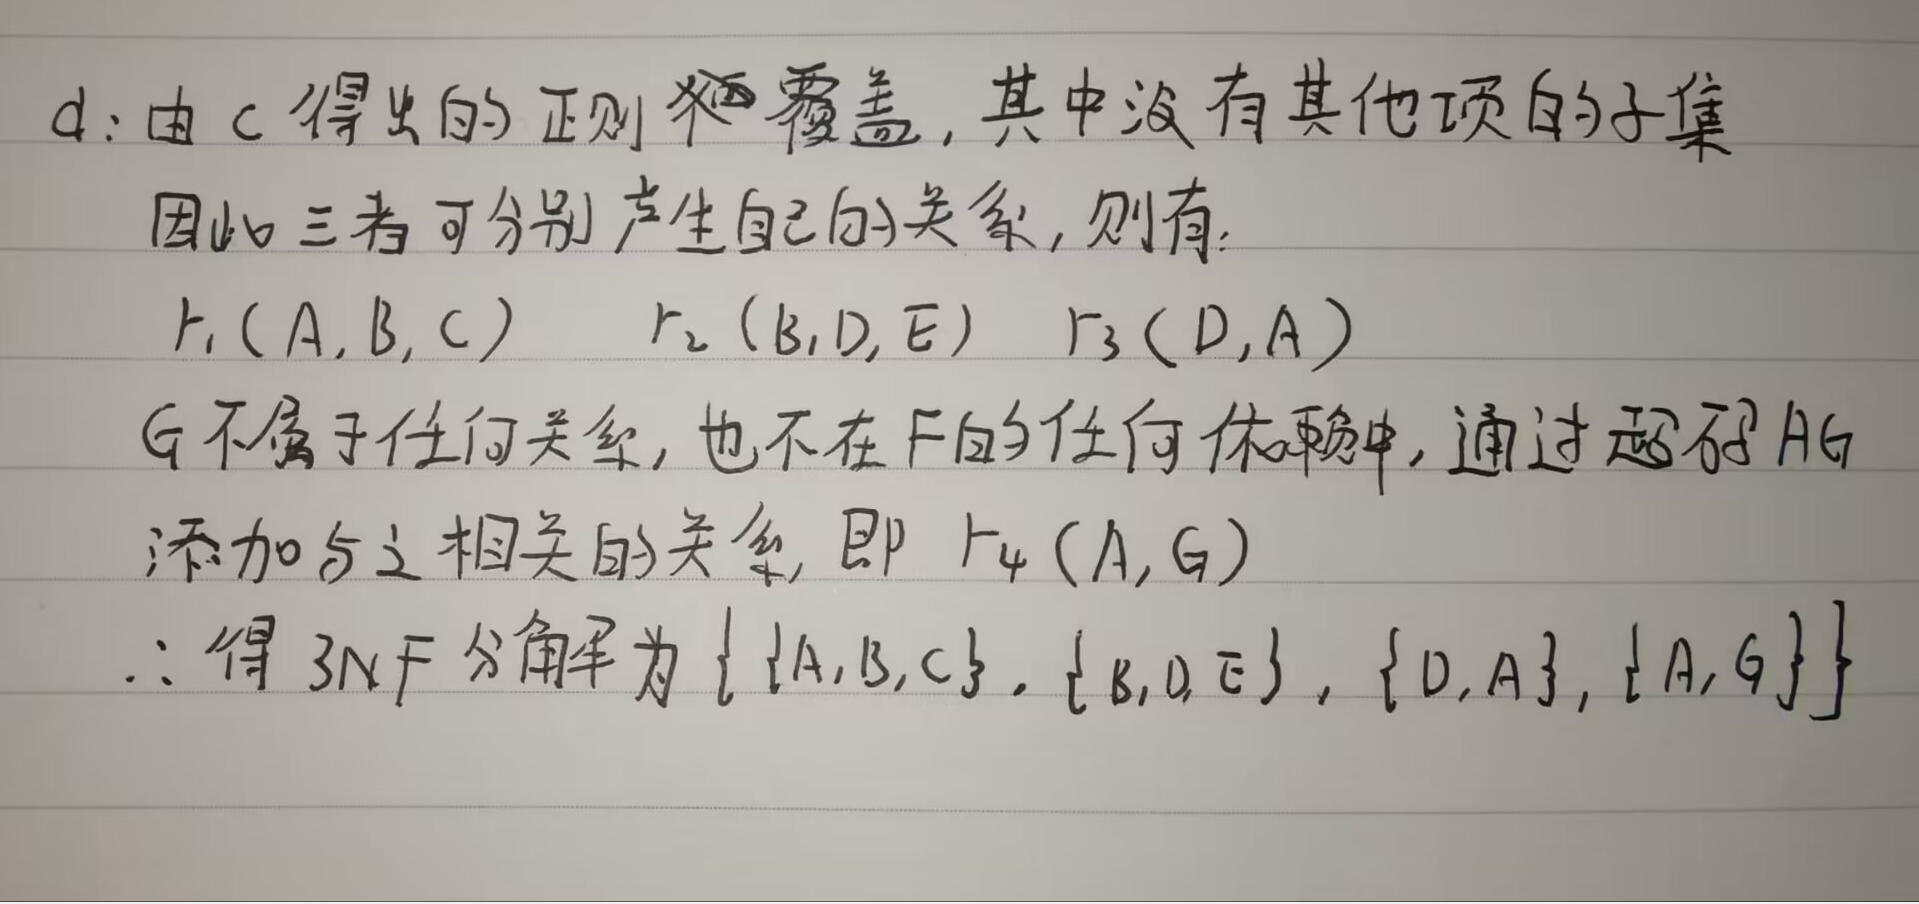 d：由 C 得出的正则覆盖，其中没有其他项的子集
因此三者可分别产生自己的关系，则有：
r₁(A,B,C) r₂(B,D,E) r₃(D,A)
G不属于任何关系，也不在F的任何依赖中，通过超码AG
添加与之相关的关系，即 r₄(A,G)
∴得 3NF 分解为{{A,B,C},{B,D,E},{D,A},{A,G}}